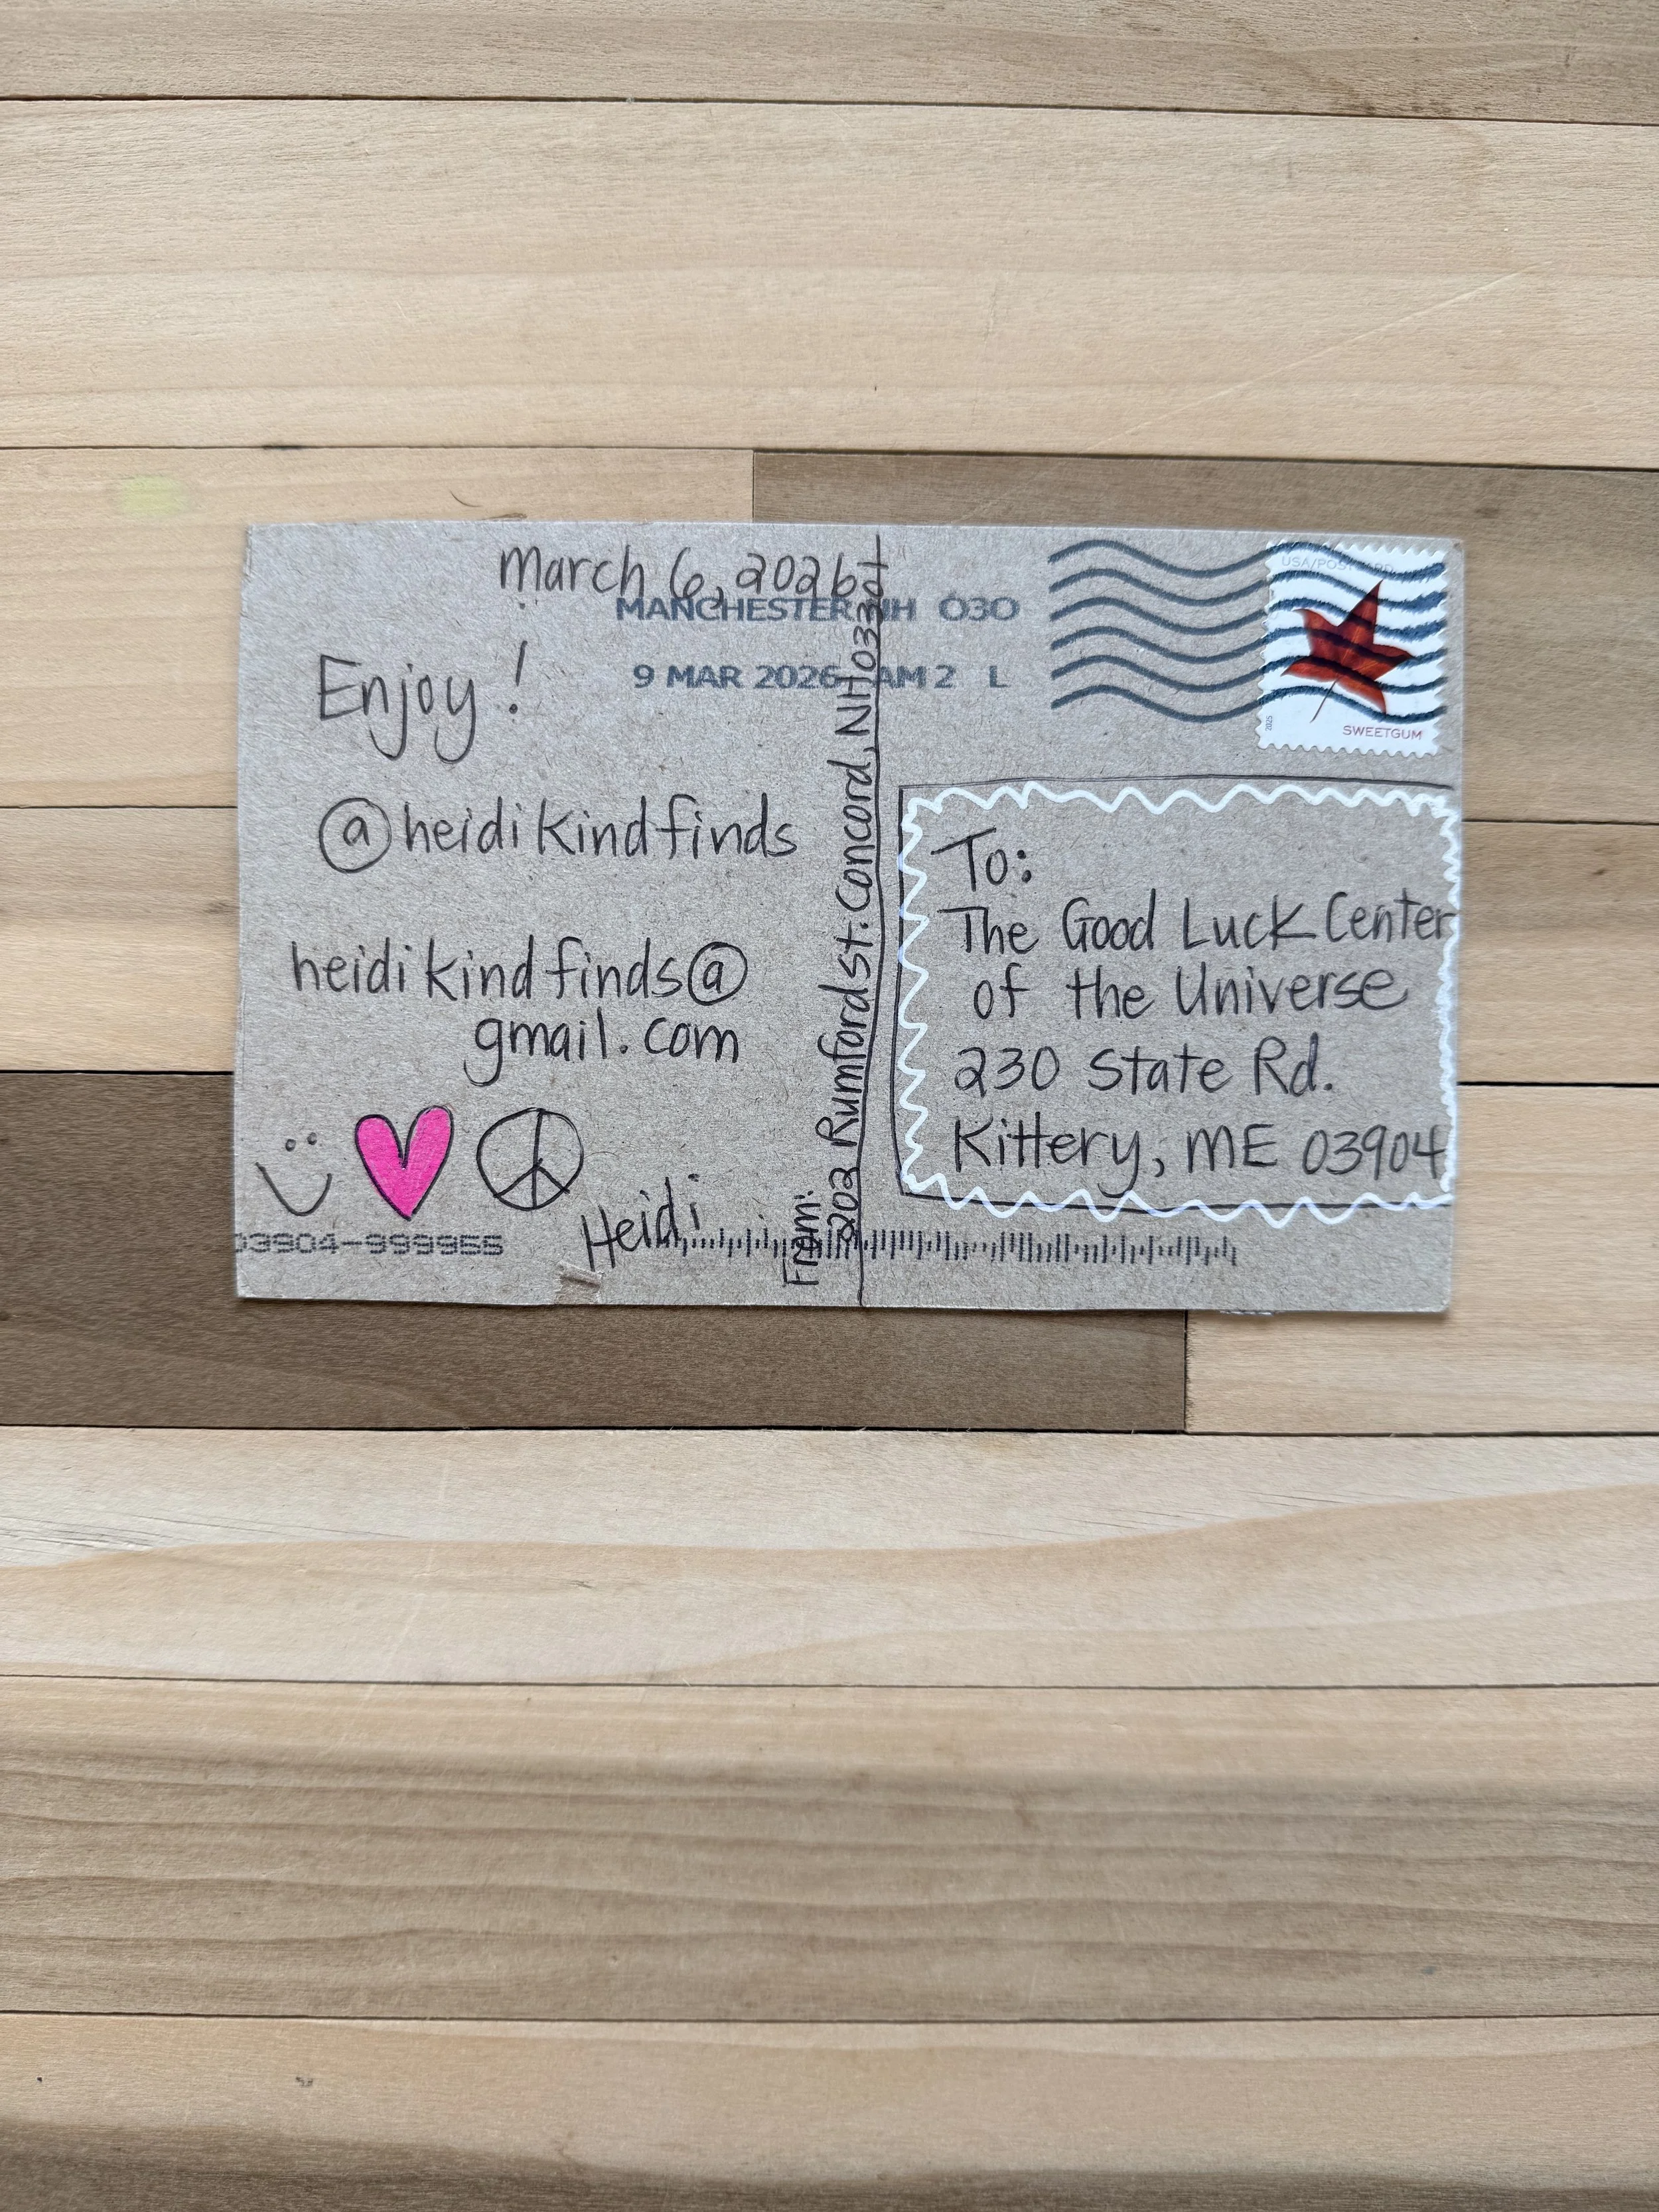 March 6, 2026
MANCHESTER NH 030
9 MAR 2026 AM 2 L
Enjoy!
@heidikindfinds
heidikindfinds@
gmail.com
Heidi
03904-999955
From:
202 Rumford St. Concord, NH 03301
USA/POSTCARD
2025
SWEETGUM
To:
The Good Luck Center
of the Universe
230 State Rd.
Kittery, ME 03904